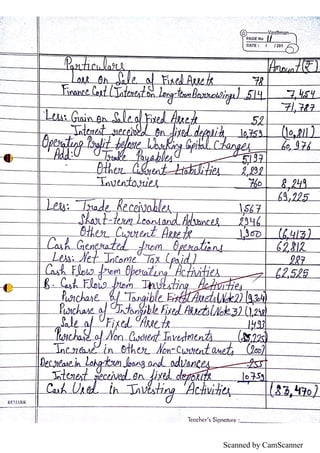 Vardhman
PAGE No. 11
DATE : / /201
Particulars Amount (₹)
Loss on Sale of Fixed Assets 78
Finance Cost (Interest on Long-term Borrowings) 514 7,454
71,787
Less: Gain on Sale of Fixed Assets 52
Interest received on fixed deposits 10,759 (10,811)
Operating Profit before Working Capital Changes 60,976
Add: Trade Payables 5,197
Other Current Liabilities 2,292
Inventories 760 8,249
69,225
Less: Trade Receivables 1,567
Short-term Loans and Advances 2946
Other Current Assets 1,900 (6,413)
Cash Generated from Operations 62,812
Less: Net Income Tax (paid) 287
Cash Flow from Operating Activities 62,525
B. Cash Flow from Investing Activities
Purchase of Tangible Fixed Assets (Note 2) (9,304)
Purchase of Intangible Fixed Assets (Note 3) (1,248)
Sale of Fixed Assets 1493
Purchase of Non Current Investments
Increase in Other Non-Current assets (200)
Decrease in Long-term loans and advances 255
Interest received on fixed deposits 10,759
Cash Used in Investing Activities (83,470)
Teacher's Signature :
Scanned by CamScanner